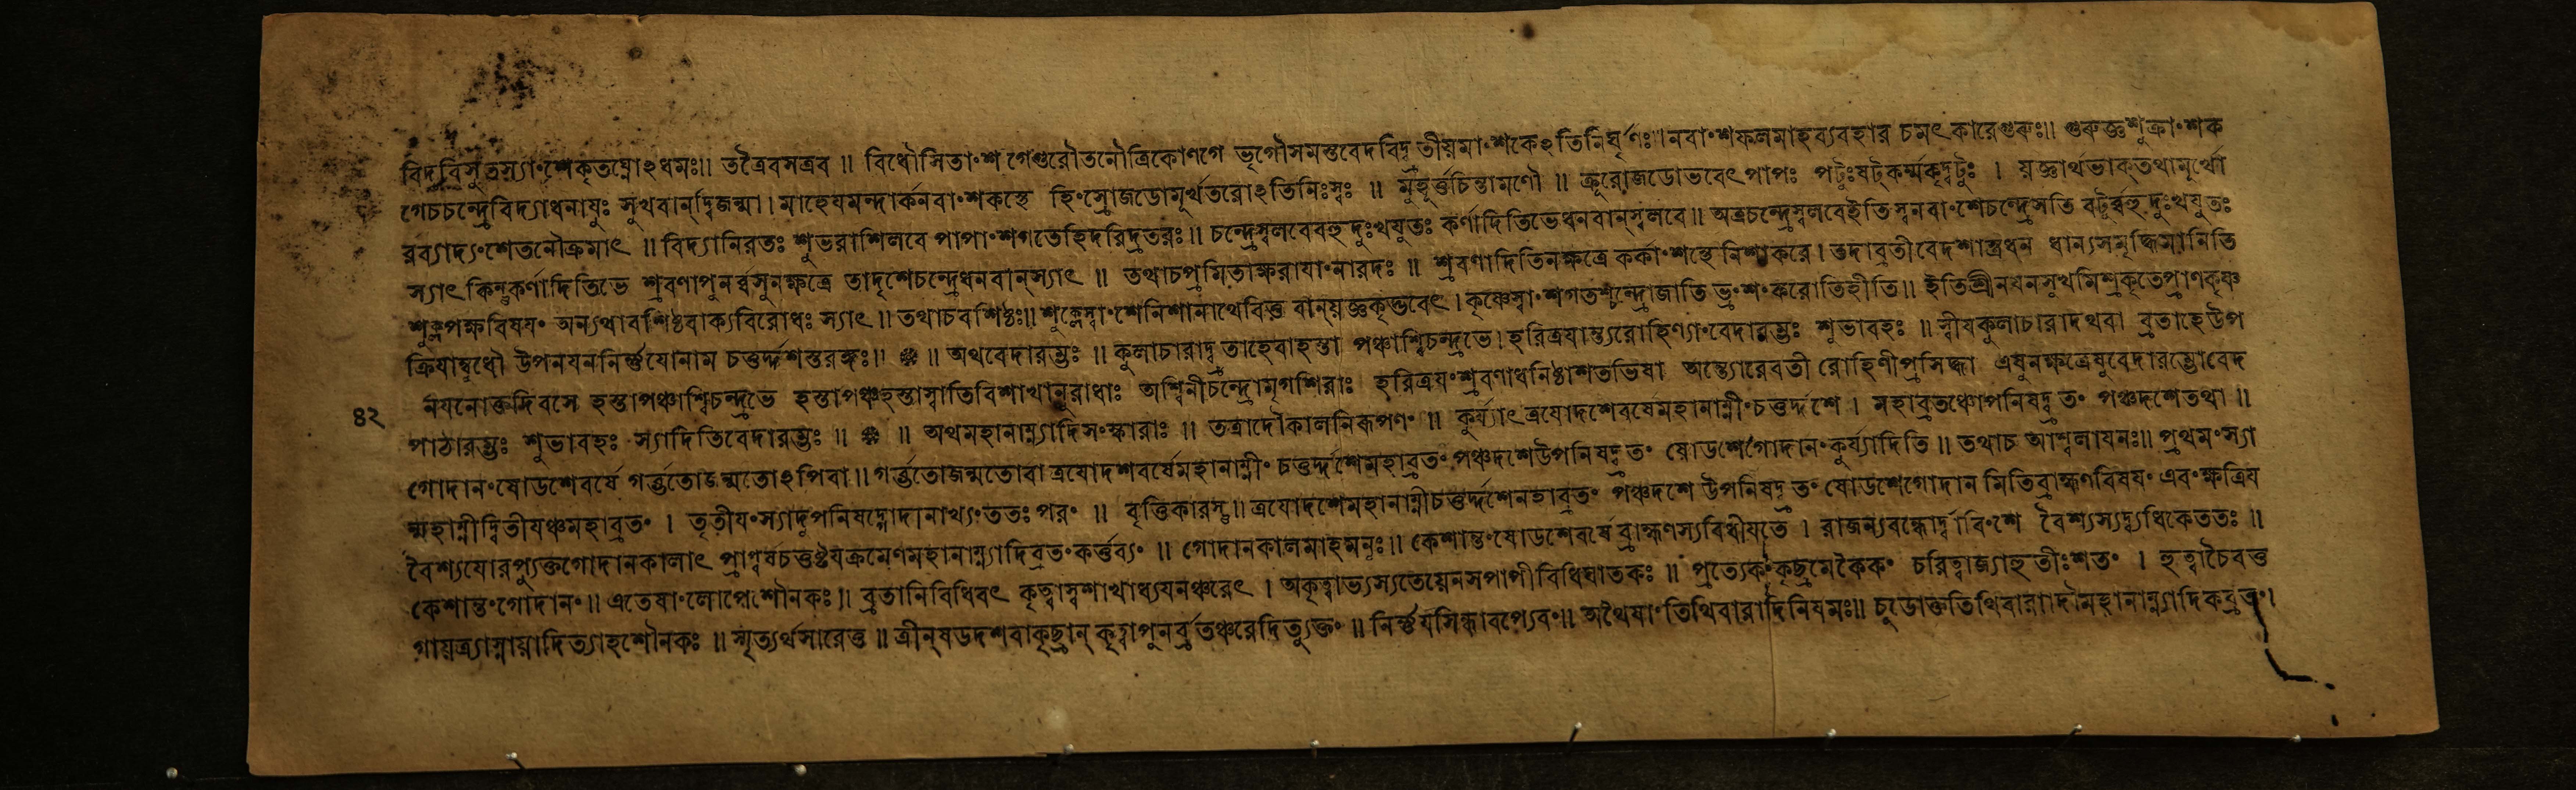 বিদ্রবিসুতস্যাংশেকৃতঘ্নোঽধমঃ॥ তত্রৈবসত্রব ॥ বিধৌসিতাংশ গেগুরৌতনৌত্রিকোণগে ভৃগৌসমস্তবেদবিদ্ব্রতীয়মাংশকেঽতিনির্ঘৃণঃ॥নবাংশফলমাহব্যবহার চমৎকারেগুরুঃ॥ গুরুজ্ঞশুক্রাংশক
গেচচন্দ্রেবিদ্যাধনাযুঃ সুখবান্দ্বিজন্মা। মাহেযমন্দার্কনবাংশকস্থে হিংস্রোজডোমূর্খতরোঽতিনিঃস্বঃ ॥ মুহূর্ত্তচিন্তামণৌ ॥ ক্রূরোজডোভবেৎপাপঃ পটুঃষট্কর্ম্মকৃদ্বটুঃ । য়জ্ঞার্থভাক্তথামূর্খো
রব্যাদ্যংশেতনৌক্রমাৎ ॥ বিদ্যানিরতঃ শুভরাশিলবে পাপাংশগতেহিদরিদ্রতরঃ॥ চন্দ্রেস্বলবেবহু দুঃখযুতঃ কর্ণাদিতিভেধনবান্স্বলবে॥ অত্রচন্দ্রেস্বলবেইতি স্বনবাংশেচন্দ্রেসতি বটুর্ব্বহু দুঃখযুতঃ
স্যাৎ কিন্তুকর্ণাদিতিভে শ্রবণাপুনর্ব্বসুনক্ষত্রে তাদৃশেচন্দ্রেধনবান্স্যাৎ ॥ তথাচপ্রমিতাক্ষরাযাংনারদঃ ॥ শ্রবণাদিতিনক্ষত্রে কর্কাংশস্থেনিশাকরে। তদাব্রতীবেদশাস্ত্রধন ধান্যসমৃদ্ধিমানিতি
শুক্লপক্ষবিষযং অন্যথাবশিষ্ঠবাক্যবিরোধঃ স্যাৎ ॥ তথাচবশিষ্ঠঃ॥ শুক্লেস্বাংশেনিশানাথেবিত্ত বান্য়জ্ঞকৃদ্ভবেৎ। কৃষ্ণেস্বাংশগতশ্চন্দ্রোজাতি ভ্রংশং করোতিহীতি॥ ইতিশ্রীনযনসুখমিশ্রকৃতেপ্রাণকৃষ্ণ
ক্রিযাম্বুধৌ উপনযননির্ণ্ণযোনাম চত্তুর্দ্দশস্তরঙ্গঃ॥ ॥ অথবেদারম্ভঃ ॥ কুলাচারাদ্ব্রতাহেবাহস্তা পঞ্চাশ্বিচন্দ্রভে। হরিত্রযান্ত্যরোহিণ্যাংবেদারম্ভঃ শুভাবহঃ ॥ স্বীযকুলাচারাদথবা ব্রতাহেউপ
নযনোক্তদিবসে হস্তাপঞ্চাশ্বিচন্দ্রভে হস্তাপঞ্চহস্তাস্বাতিবিশাখানুরাধাঃ অশ্বিনীচন্দ্রোমৃগশিরাঃ হরিত্রযংশ্রবণাধনিষ্ঠাশতভিষা অন্ত্যোরেবতী রোহিণীপ্রসিদ্ধা এষুনক্ষত্রেষুবেদারম্ভোবেদ
৪২
পাঠারম্ভঃ শুভাবহঃ স্যাদিতিবেদারম্ভঃ ॥ ॥ অথমহানাম্ন্যাদিসংস্কারাঃ ॥ তত্রাদৌকালনিরূপণং ॥ কুর্য্যাৎত্রযোদশেবর্ষেমহানাম্নীংচত্তুর্দ্দশে । মহাব্রতঞ্চোপনিষদ্ব্রতং পঞ্চদশেতথা ॥
গোদানংষোডশেবর্ষে গর্ব্ভতোজন্মতোঽপিবা॥ গর্ব্ভতোজন্মতোবা ত্রযোদশবর্ষেমহানাম্নীং চত্তুর্দ্দশেমহাব্রতং পঞ্চদশেউপনিষদ্ব্রতং ষোডশেগোদানংকুর্য্যাদিতি ॥ তথাচ আশ্বলাযনঃ॥ প্রথমংস্যা
ন্মহাম্নীদ্বিতীযঞ্চমহাব্রতং । তৃতীযংস্যাদুপনিষদ্গোদানাখ্যংততঃ পরং ॥ বৃত্তিকারস্তু॥ ত্রযোদশেমহানাম্নীচত্তুর্দ্দশেমহাব্রতং পঞ্চদশে উপনিষদ্ব্রতংষোডশেগোদান মিতিব্রাহ্মণবিষযং এবংক্ষত্রিয
বৈশ্যযোরপ্যুক্তগোদানকালাৎ প্রাগ্বর্ষচত্তুষ্টযক্রমেণমহানাম্ন্যাদিব্রতংকর্ত্তব্যং ॥ গোদানকালমাহমনুঃ॥ কেশান্তংষোডশেবর্ষে ব্রাহ্মণস্যবিধীযতে । রাজন্যবন্ধোর্দ্বাবিংশে বৈশ্যস্যদ্ব্যধিকেততঃ ॥
কেশান্তংগোদানং॥ এতেষাংলোপেশৌনকঃ॥ ব্রতানিবিধিবৎ কৃত্বাস্বশাখাধ্যযনঞ্চরেৎ । অকৃত্বাভ্যস্যতেয়েনসপাপীবিধিঘাতকঃ ॥ প্রত্যেকংকৃচ্ছ্রমেকৈকং চরিত্বাজ্যাহুতীঃশতং । হুত্বাচৈবত্ত
গায়ত্র্যাস্নায়াদিত্যাহশৌনকঃ ॥ স্মৃত্যর্থসারেত্তু ॥ ত্রীন্ষডদশবাকৃচ্ছ্রান্ কৃত্বাপুনর্ব্রতঞ্চরেদিত্যুক্তং ॥ নির্ণ্ণযসিন্ধাবপ্যেবং॥ অথৈষাংতিথিবারাদিনিযমঃ॥ চূডোক্ততিথিবারাদৌমহানাম্ন্যাদিকব্রতং।